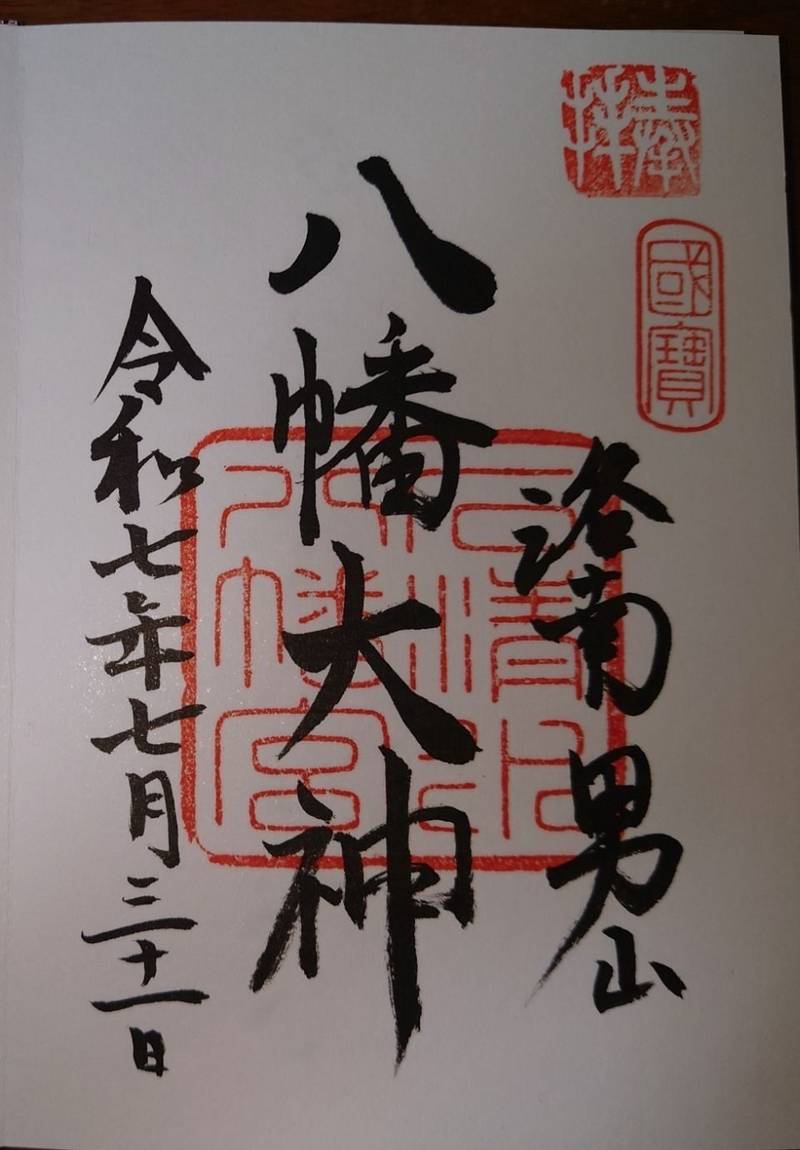 奉拝
國寶
洛南男山
八幡大神
石清水八幡宮
令和七年七月三十一日